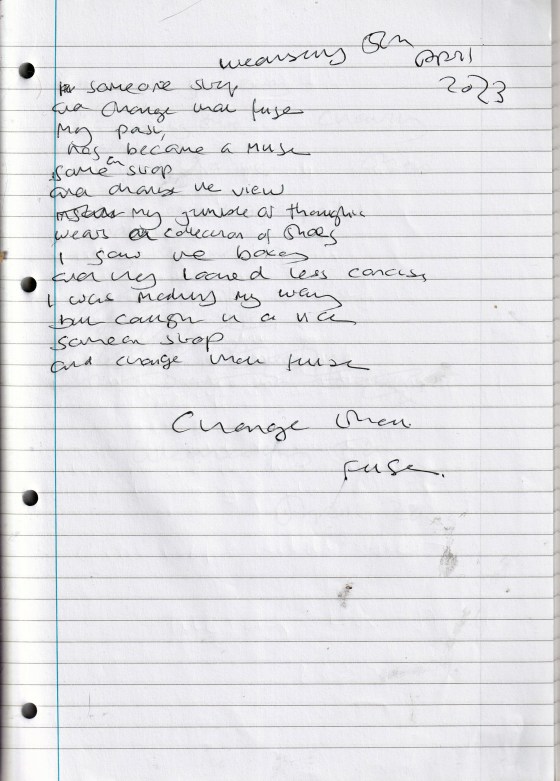 wednesday 5th April
2023
someone stop
and change that fuse
my past,
has became a muse
someone stop
and change the view
my jumble of thoughts
wears a collection of shoes
I saw the boxes
and they looked less concise
I was making my way
but caught in a vice
someone stop
and change that fuse
Change that
Fuse.